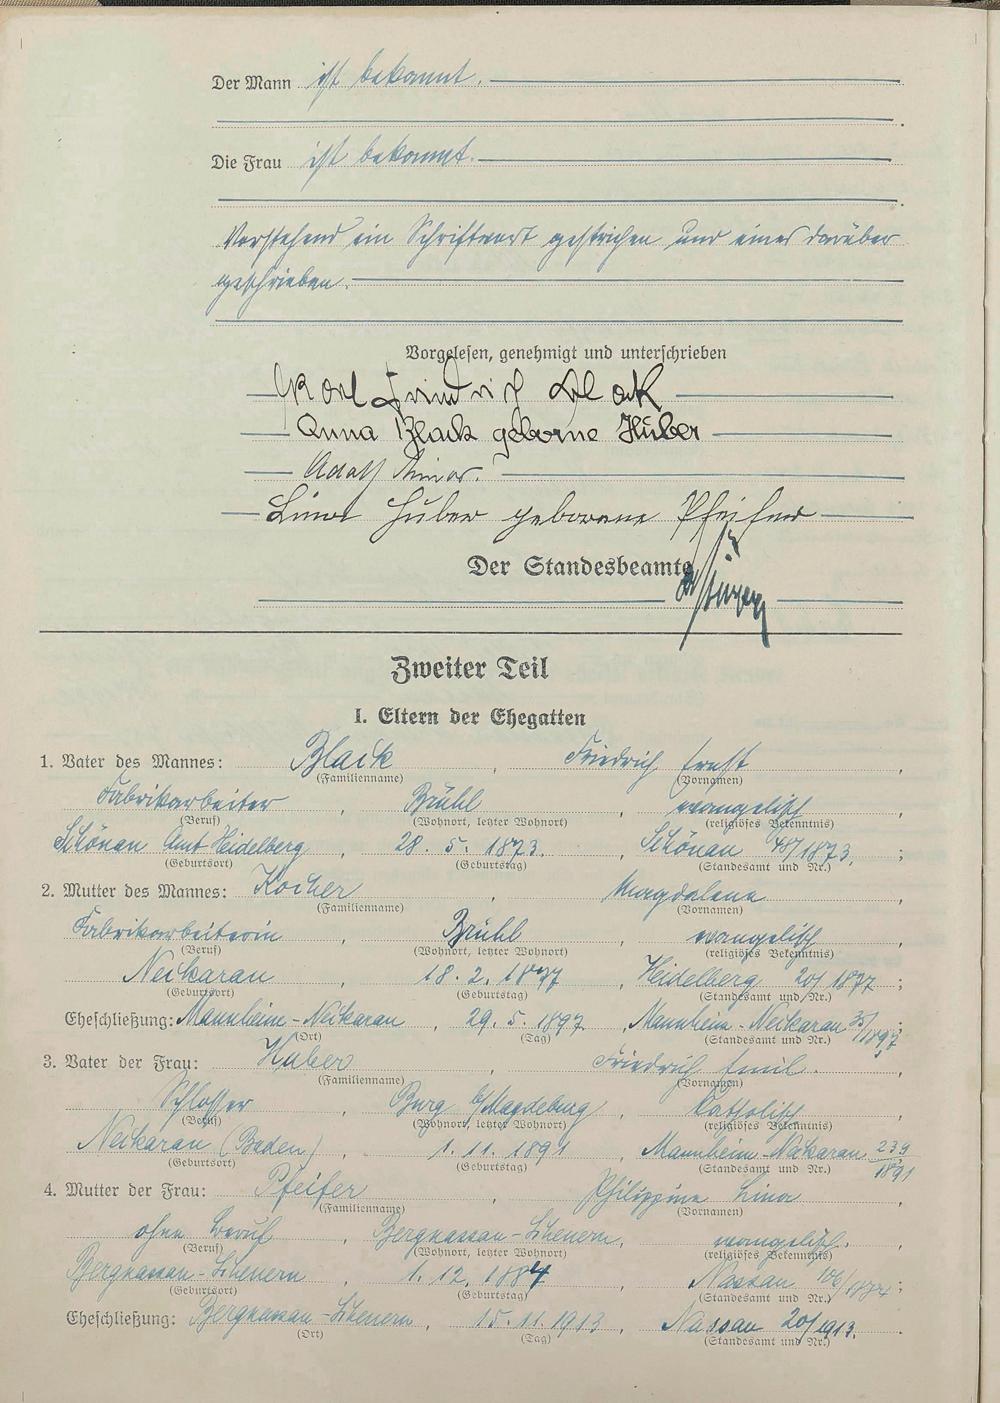 Der Mann ist bekannt.
Die Frau ist bekannt.
Vorstehend ein Schriftwort gestrichen und eines darüber
geschrieben.
Vorgelesen, genehmigt und unterschrieben
Karl Friedrich Black
Anna Black geborne Huber
Adolf
Lina Huber geborene Pfeifer
Der Standesbeamte
Zweiter Teil
I. Eltern der Ehegatten
1. Vater des Mannes: Black, Friedrich Ernst,
(Familienname) (Vornamen)
Fabrikarbeiter, Brühl, evangelisch,
(Beruf) (Wohnort, letzter Wohnort) (religiöses Bekenntnis)
Schönau Amt Heidelberg, 28. 5. 1873., Schönau 48/1873.;
(Geburtsort) (Geburtstag) (Standesamt und Nr.)
2. Mutter des Mannes: Kocher, Magdalena,
(Familienname) (Vornamen)
Fabrikarbeiterin, Brühl, evangelisch,
(Beruf) (Wohnort, letzter Wohnort) (religiöses Bekenntnis)
Neckarau, 18. 2. 1877, Heidelberg 20/1877;
(Geburtsort) (Geburtstag) (Standesamt und Nr.)
Eheschließung: Mannheim-Neckarau, 29. 5. 1897, Mannheim-Neckarau 35/1897;
(Ort) (Tag) (Standesamt und Nr.)
3. Vater der Frau: Huber, Friedrich Emil.,
(Familienname) (Vornamen)
Schlosser, Burg b/Magdeburg, katholisch,
(Beruf) (Wohnort, letzter Wohnort) (religiöses Bekenntnis)
Neckarau (Baden), 1. 11. 1891, Mannheim-Neckarau 239/1891
(Geburtsort) (Geburtstag) (Standesamt und Nr.)
4. Mutter der Frau: Pfeifer, Philippine Lina,
(Familienname) (Vornamen)
ohne Beruf, Bergnassau-Scheuern, evangelisch.,
(Beruf) (Wohnort, letzter Wohnort) (religiöses Bekenntnis)
Bergnassau-Scheuern, 1. 12. 1884, Nassau 106/1884;
(Geburtsort) (Geburtstag) (Standesamt und Nr.)
Eheschließung: Bergnassau-Scheuern, 15. 11. 1913, Nassau 20/1913.
(Ort) (Tag) (Standesamt und Nr.)